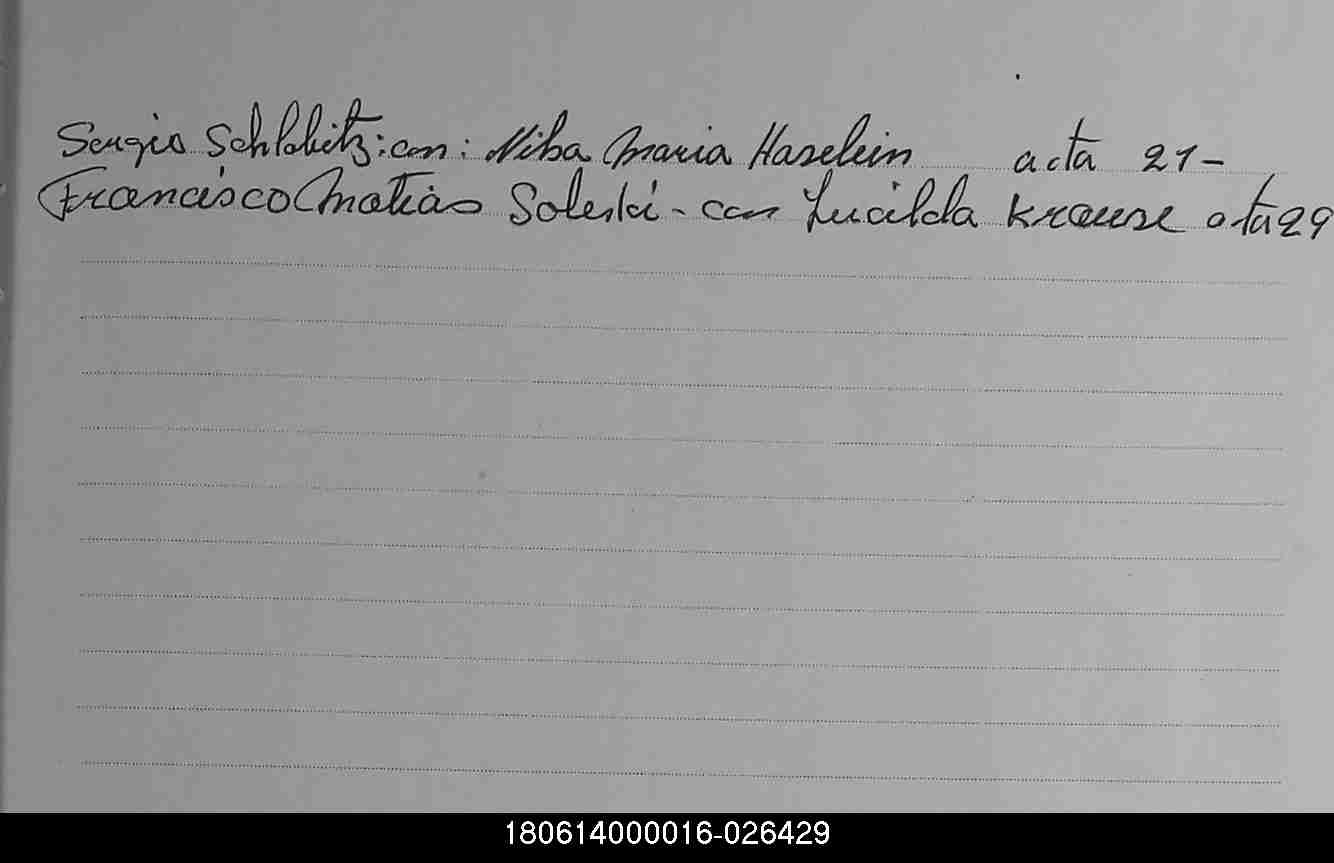 Sergio Schlabitz: con: Niba Maria Haselein acta 21-
Francisco Matias Soleski - con Lucilda Krause ata 29
180614000016-026429